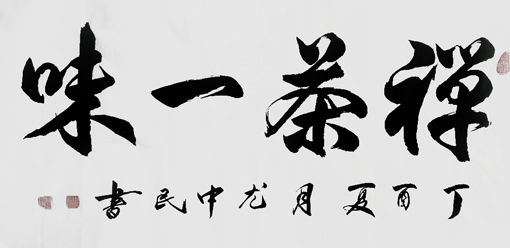 禅茶一味
丁酉夏月龙中民书